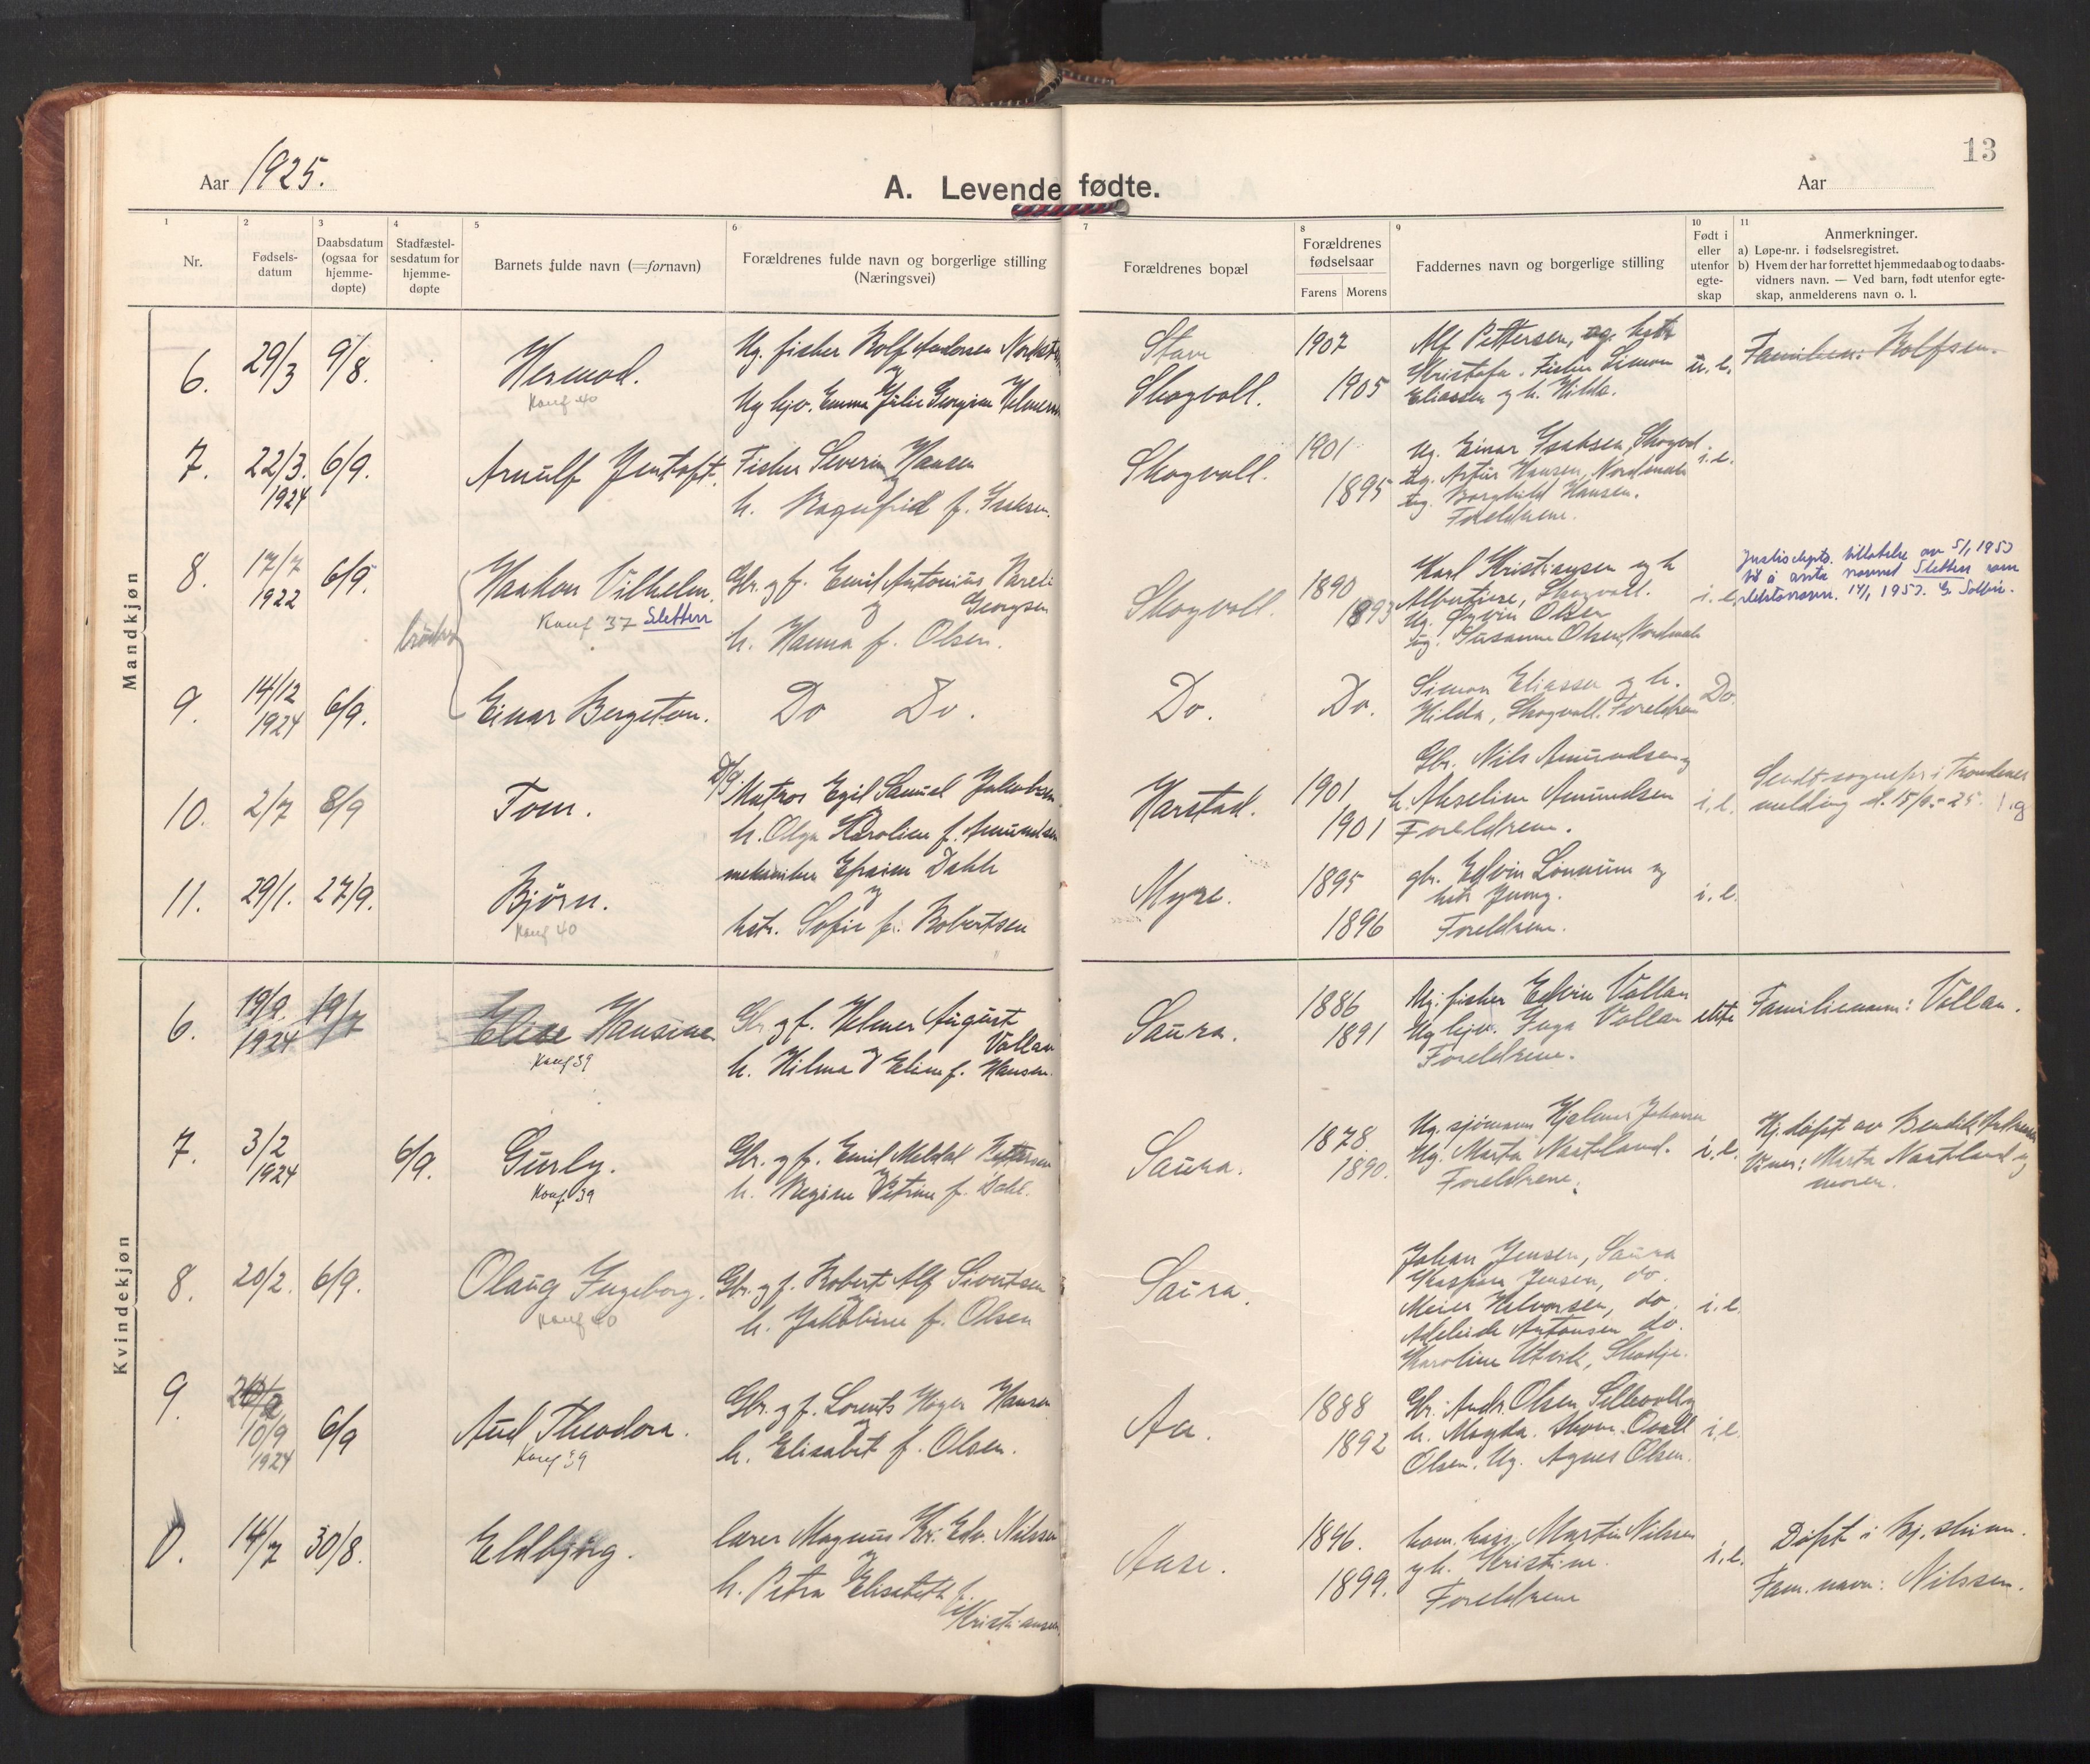 Aar 1925.
A. Levende fødte.
13
Aar
1 2 3 4 5 6 7 8 9 10 11
Nr.
Fødsels-
datum
Daabsdatum
(ogsaa for
hjemme-
døpte)
Stadfæstel-
sesdatum for
hjemme-
døpte
Barnets fulde navn (=fornavn)
Forældrenes fulde navn og borgerlige stilling
(Næringsvei)
Forældrenes bopæl
Forældrenes
fødselsaar
Farens Morens
Faddernes navn og borgerlige stilling
Født i
eller
utenfor
egte-
skap
Anmerkninger.
a) Løpe-nr. i fødselsregistret.
b) Hvem der har forrettet hjemmedaab og to daabs-
vidners navn. — Ved barn, født utenfor egte-
skap, anmelderens navn o. l.
Mandkjøn
6. 29/3 9/8.
Hermod.
Konf 40
Ug. fisker Rolf Andersen
og
Ug. hjv. Emma Julie Georgine
Stave
Skogvoll.
1902
1905
Alf Pettersen, og hstr
Kristofa. Fisker Simon
Eliassen og h. Hilda.
u. e.
Familien: Rolfsen.
7. 22/3 6/9.
1924
Arnulf Jentoft.
Fisker Severin Hansen
og
h. Ragnfrid f. Isaksen.
Skogvoll.
1901
1895
Ug. Einar Isaksen, Skogvol
Ug. Artur Hansen, Nordmela
Ug. Borghild Hansen.
Foreldrene.
i. e.
8. 17/7 6/9
1922
Haakon Vilhelm.
Konf 37 Sletten
brødre
Gbr. og f. Emil Antonius
Georgsen
og
h. Hanna f. Olsen.
Skogvoll.
1890
1893
Karl Kristiansen og h
Albertine, Skogvoll.
Ug. Øyvin Olsen
Ug. Susanne Olsen, Nordmela
i. e.
Justisdepts. tillatelse av 5/1 1953
til å anta navnet Sletten som
slektsnavn. 14/1 1953.
9. 14/12 6/9.
1924
Einar Bergeton.
Do Do.
Do.
Do.
Simon Eliassen og h.
Hilda, Skogvoll. Foreldrene
Do.
10. 2/7 8/9
Tom.
Matros Egil Samuel Jakobsen
og
h. Olga Karoline f. Amundsen
Harstad.
1901
1901
Gbr. Nils Amundsen og
h. Akseline Amundsen
Foreldrene.
i. e.
Sendt sognepr i Trondenes
melding d. 15/9 - 25.
11. 29/1. 27/9.
Bjørn.
Konf 40
mekaniker Efraim Dahle
og
hstr. Sofie f. Robertsen
Myre.
1895
1896
gbr. Edvin Lønnum og
hstr Jenny.
Foreldrene.
i. e.
Kvindekjøn
6. 19/9. 19/7
1924
Elise Hansine
Konf 39
Gbr og f. Helmer August
Vollan
og
h. Hilma Eline f. Hansen.
Saura.
1886
1891
Ug. fisker Edvin Vollan
Ug hjv. Inga Vollan
Foreldrene.
Familienavn: Vollan.
7. 3/2 6/9.
1924
Gurly.
Konf 39
Gbr. og f. Emil Meldal Pettersen
og
h. Regine Petrine f. Dahl.
Saura.
1878
1890.
Ug. sjømann Hjalmar Johansen
Ug. Marta Nastland.
Foreldrene.
i. e.
Hj. døpt av Bendik
Vitner: Marta Nastland og
moren.
8. 20/2. 6/9.
Olaug Ingeborg.
Konf 40
Gbr. og f. Robert Alf Sivertsen
og
h. Jakobine f. Olsen
Saura.
Johan Jensen, Saura
Kaspara Jensen, do.
Meier Halvorsen, do.
Adeleide Antonsen do.
Karoline Utvik, Skodje.
i. e.
9.
10/9 6/9
1924
Aud Theodora.
Konf 39
Gbr. og f. Lorents Hoyer Hansen
og
h. Elisabet f. Olsen.
Aa.
1888
1892
Gbr. Andr. Olsen, Sellevoll og
h. Magda.
Olsen. Ug. Agnes Olsen.
i. e.
0. 14/7 30/8.
Eldbjørg.
lærer Magnus Kr. Edv. Nilssen
og
h. Petra Elisabeth f.
Kristiansen
Aase.
1896.
1899.
Martin Nilssen
og h. Kristine.
Foreldrene
i. e.
Døpt i
Fam. navn: Nilssen.